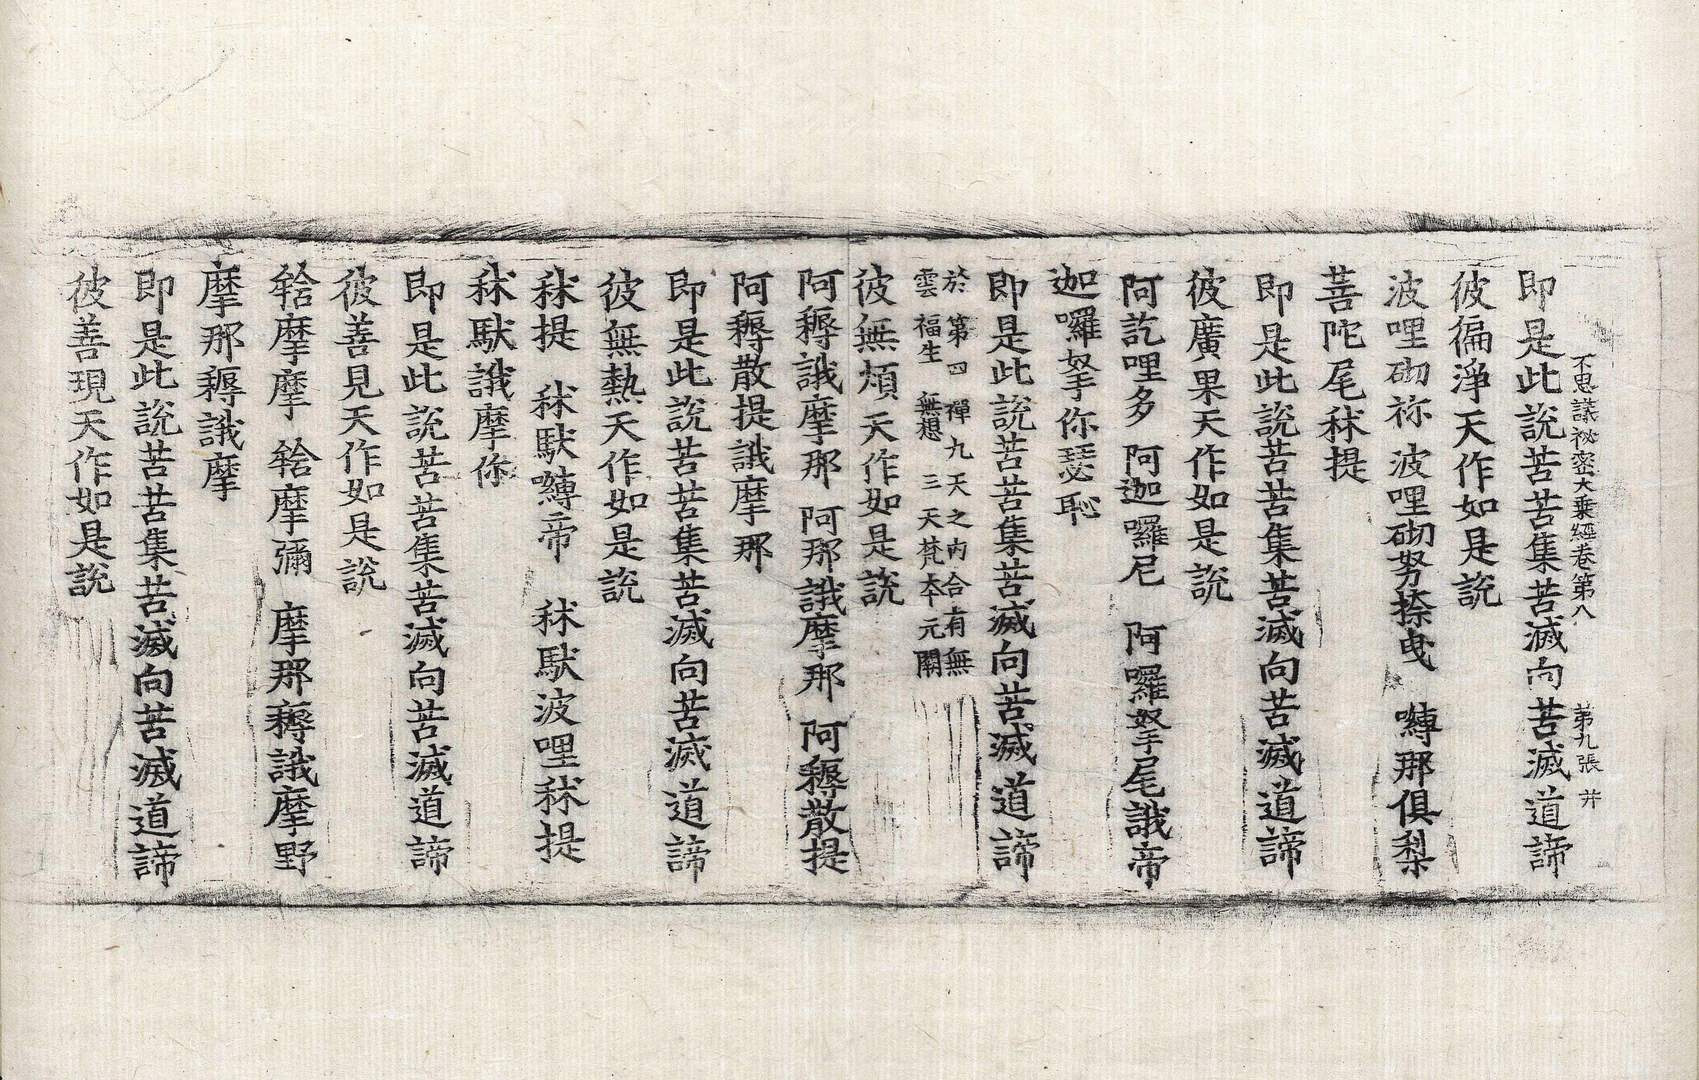 不思議祕密大乘經卷第八 第九張 幷
即是此說苦苦集苦滅向苦滅道諦
彼徧淨天作如是說
波哩砌祢 波哩砌努捺曳 嚩那俱梨
菩陀尾秣提
即是此說苦苦集苦滅向苦滅道諦
彼廣果天作如是說
阿訖哩多 阿迦囉尼 阿囉拏尾誐帝
迦囉拏你瑟恥
即是此說苦苦集苦滅向苦滅道諦
於第四禪九天之內合有無
雲福生無想三天梵本元闕
彼無煩天作如是說
阿耨誐摩那 阿那誐摩那 阿耨散提
阿耨散提誐摩那
即是此說苦苦集苦滅向苦滅道諦
彼無熱天作如是說
秣提 秣馱嚩帝 秣馱波哩秣提
秣馱誐摩你
即是此說苦苦集苦滅向苦滅道諦
彼善見天作如是說
摩摩 摩彌 摩那耨誐摩野
摩那耨誐摩
即是此說苦苦集苦滅向苦滅道諦
彼善現天作如是說